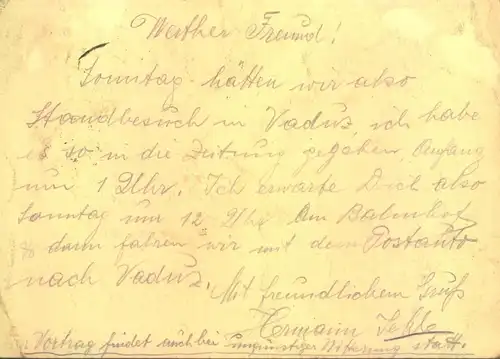 Werther Freund!
Sonntag hätten wir also
Standbesuch in Vaduz, ich habe
es so in die Zeitung gegeben. Anfang
um 1 Uhr. Ich erwarte Dich also
Sonntag um 12 Uhr Am Bahnhof
dann fahren wir mit dem Postauto
nach Vaduz.
Mit freundlichem Gruß
Hermann
Vortrag findet auch bei ungünstiger Witterung statt.